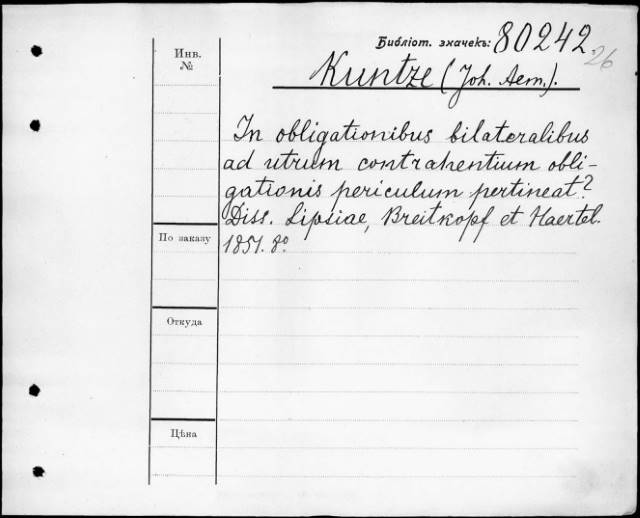 Библіот. значекъ: 80242.
26
Инв.
№
Kuntze (Joh. Aem.).
In obligationibus bilateralibus
ad utrum contrahentium obli-
gationis periculum pertineat?
Diss. Lipsiae, Breitkopf et Haertel.
По заказу
1851. 8º
Откуда
Цѣна